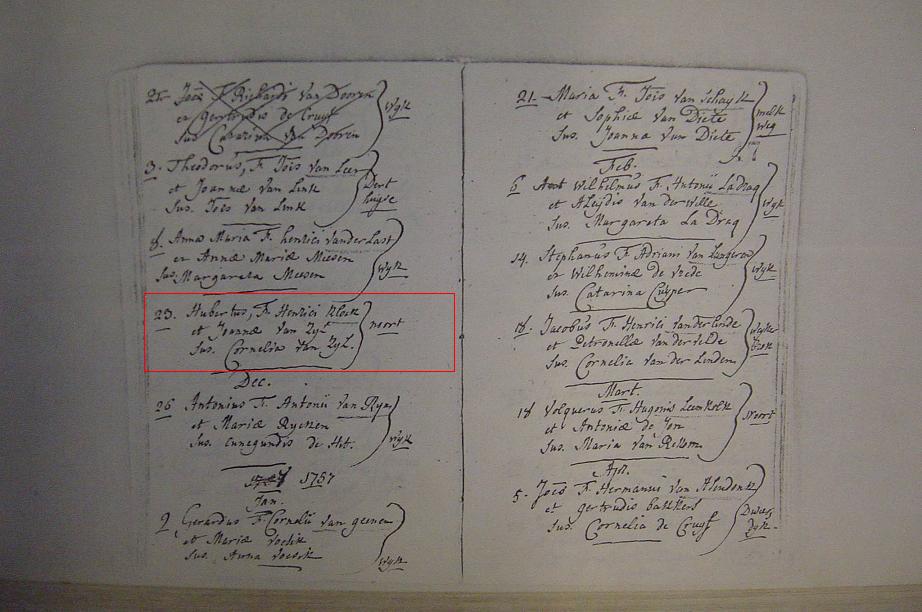 Joës F. Richardi Van Dooren
en gertrudis de Cruyf
Sus. Catarina Van Doren
Wyk
3. Theodorus, F. Tois van Leer
et Joannæ van Link
Sus. Tois van Link
8. Anna Maria F. henrici vanderLast
en Annæ Mariæ Meesen
Sus. Margareta Meesen
Wyk
23. Hubertus, F. Henrici Kloek
et Joannæ van Zyl
Sus. Cornelia van Zyl.
noort
Dec.
26 Antonius F. Antonii van Ryn
et Mariæ Rycken
Sus. Cunegundis de Hit.
Wyk
1757
Jan.
2 Gerardus F. Cornelii van geenen
et Mariæ
Sus. Anna
Wyk
21. Maria F. Tois van Schayk
et Sophiæ van Diete
Sus. Joanna van Diete
melk
weg
Feb.
6 Wilhelmus F. Antonii LaDraq
et Aleydis van der Wille
Sus. Margareta La Draq
Wyk
14. Stephanus F. Adriani van Langeren
en Wilheminæ de Vrede
Sus. Catarina Cuyper
Wyk
18. Jacobus F. Henrici Vanderlinde
et Petronellæ van der Velde
Sus. Cornelia van der Linden
Mart.
18 Volquerus F. Hugonis Leenkolk
et Antoniæ de Jon
Sus. Maria van Rossom
Noort
Apr.
5. Joës F. Hermanni van
et gertrudis bakkers
Sus. Cornelia de Cruyf